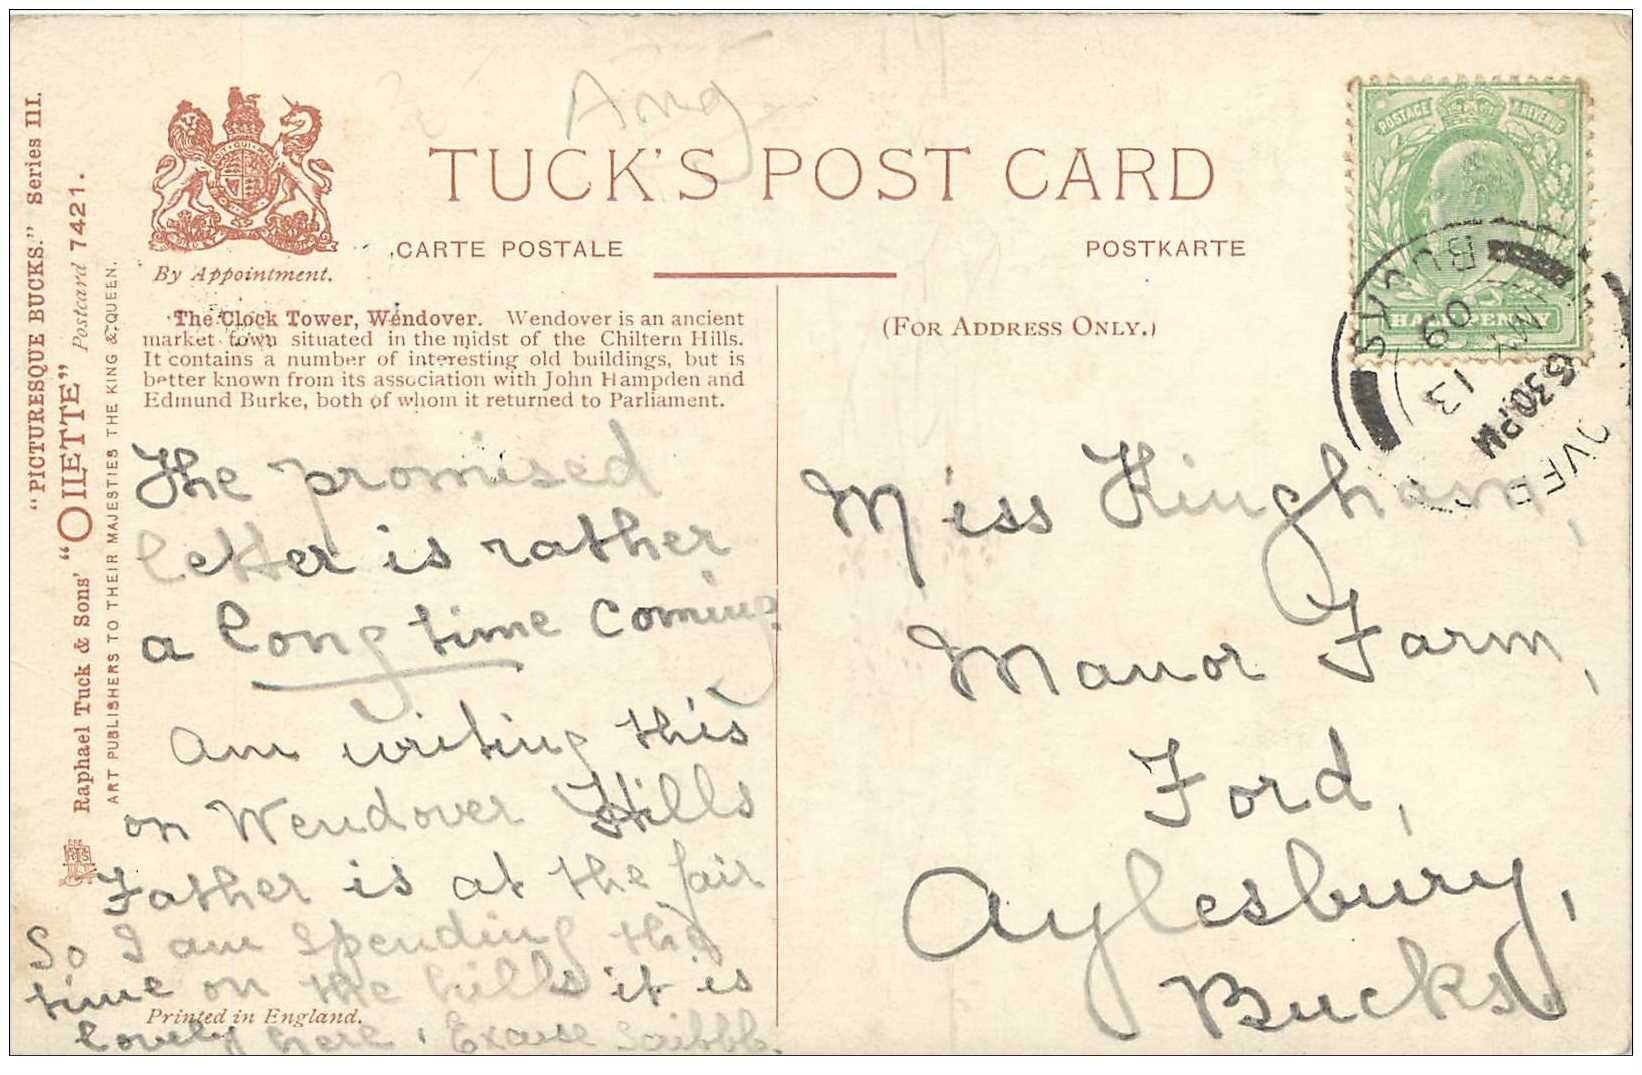 Ang
TUCK'S POST CARD
CARTE POSTALE
POSTKARTE
By Appointment.
"PICTURESQUE BUCKS." Series III.
Raphael Tuck & Sons' "OILETTE" Postcard 7421.
ART PUBLISHERS TO THEIR MAJESTIES THE KING & QUEEN.
The Clock Tower, Wendover. Wendover is an ancient
market town situated in the midst of the Chiltern Hills.
It contains a number of interesting old buildings, but is
better known from its association with John Hampden and
Edmund Burke, both of whom it returned to Parliament.
The promised
letter is rather
a long time coming
am writing this
on Wendover Hills
Father is at the fair
So I am spending the
time on the hills it is
lovely here. Excuse scribble.
Printed in England.
(FOR ADDRESS ONLY.)
POSTAGE REVENUE
HALFPENNY
BUCKS
5 30 PM
MY 13
09
Miss Kingham,
Manor Farm,
Ford,
Aylesbury,
Bucks.